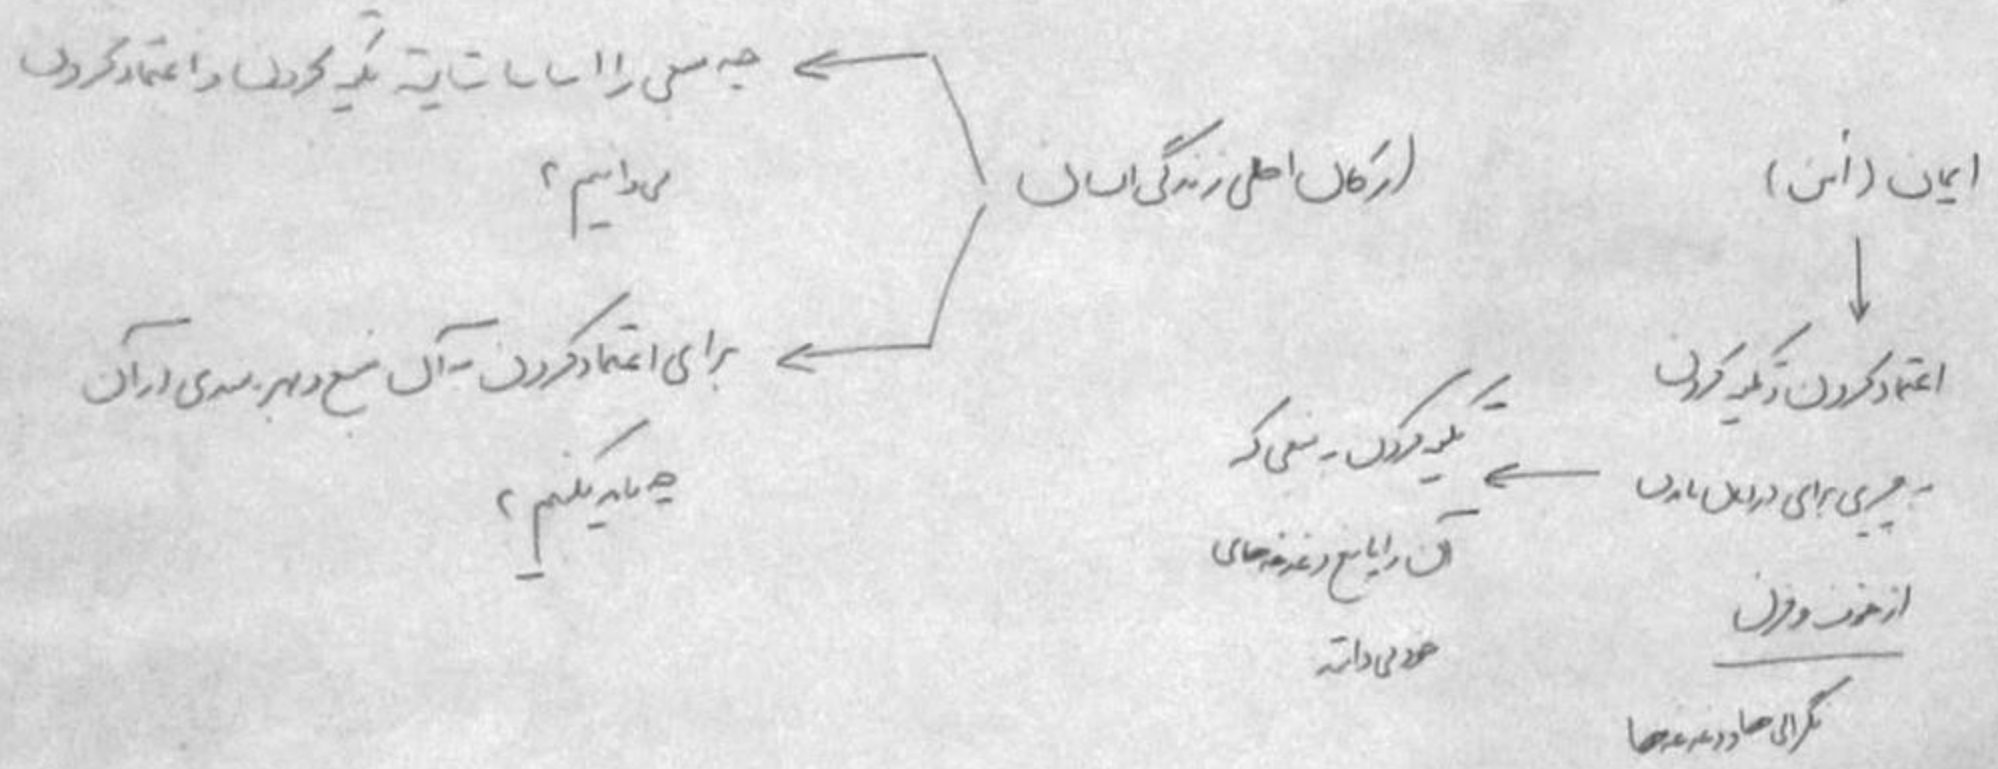 ایمان (أمن)
اعتماد کردن و تکیه کردن
به چیزی برای در امان ماندن
از خوف و حزن
نگرانی ها و دغدغه ها
تکیه کردن به منبعی که
آن را پاسخ دغدغه های
خود می داند
ارکان اصلی زندگی انسان
چه منبعی را اساسا شایسته تکیه کردن و اعتماد کردن
می دانیم؟
برای اعتماد کردن به آن منبع و بهره مندی از آن
چه باید بکنیم؟